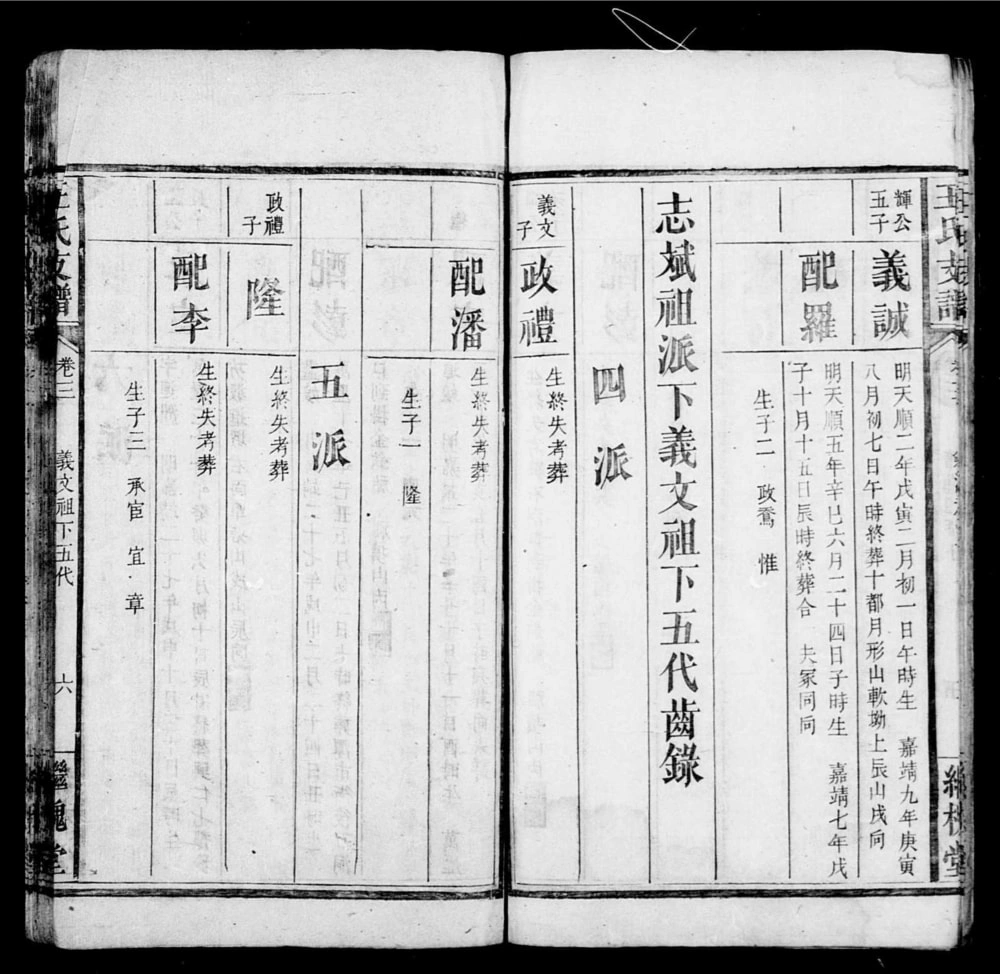 輝公
五子
義誠
明天順二年戊寅二月初一日午時生 嘉靖九年庚寅
八月初七日午時終葬十都月形山軟坳上辰山戌向
配羅
明天順五年辛巳六月二十四日子時生 嘉靖七年戊
子十月十五日辰時終葬合 夫冢同向
生子二 政鶱 惟
志斌祖派下義文祖下五代齒錄
四派
義文
子
政禮
生終失考葬
配潘
生終失考葬
生子一 隆
五派
政禮
子
隆
生終失考葬
配李
生終失考葬
生子三 承宦 宜 章
王氏支譜
卷三
義文祖下五代
六
繼槐堂